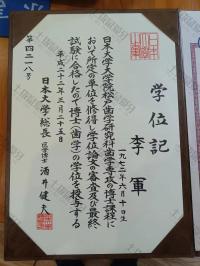 学位記
李軍
一九七二年六月十日生
日本大学大学院松戸歯学研究科歯学専攻の博士課程に
おいて所定の単位を修得し学位論文の審査及び最終
試験に合格したので博士（歯学）の学位を授与する
平成二十二年三月二十五日
日本大学総長
医学博士
酒井健夫
第四二一八号